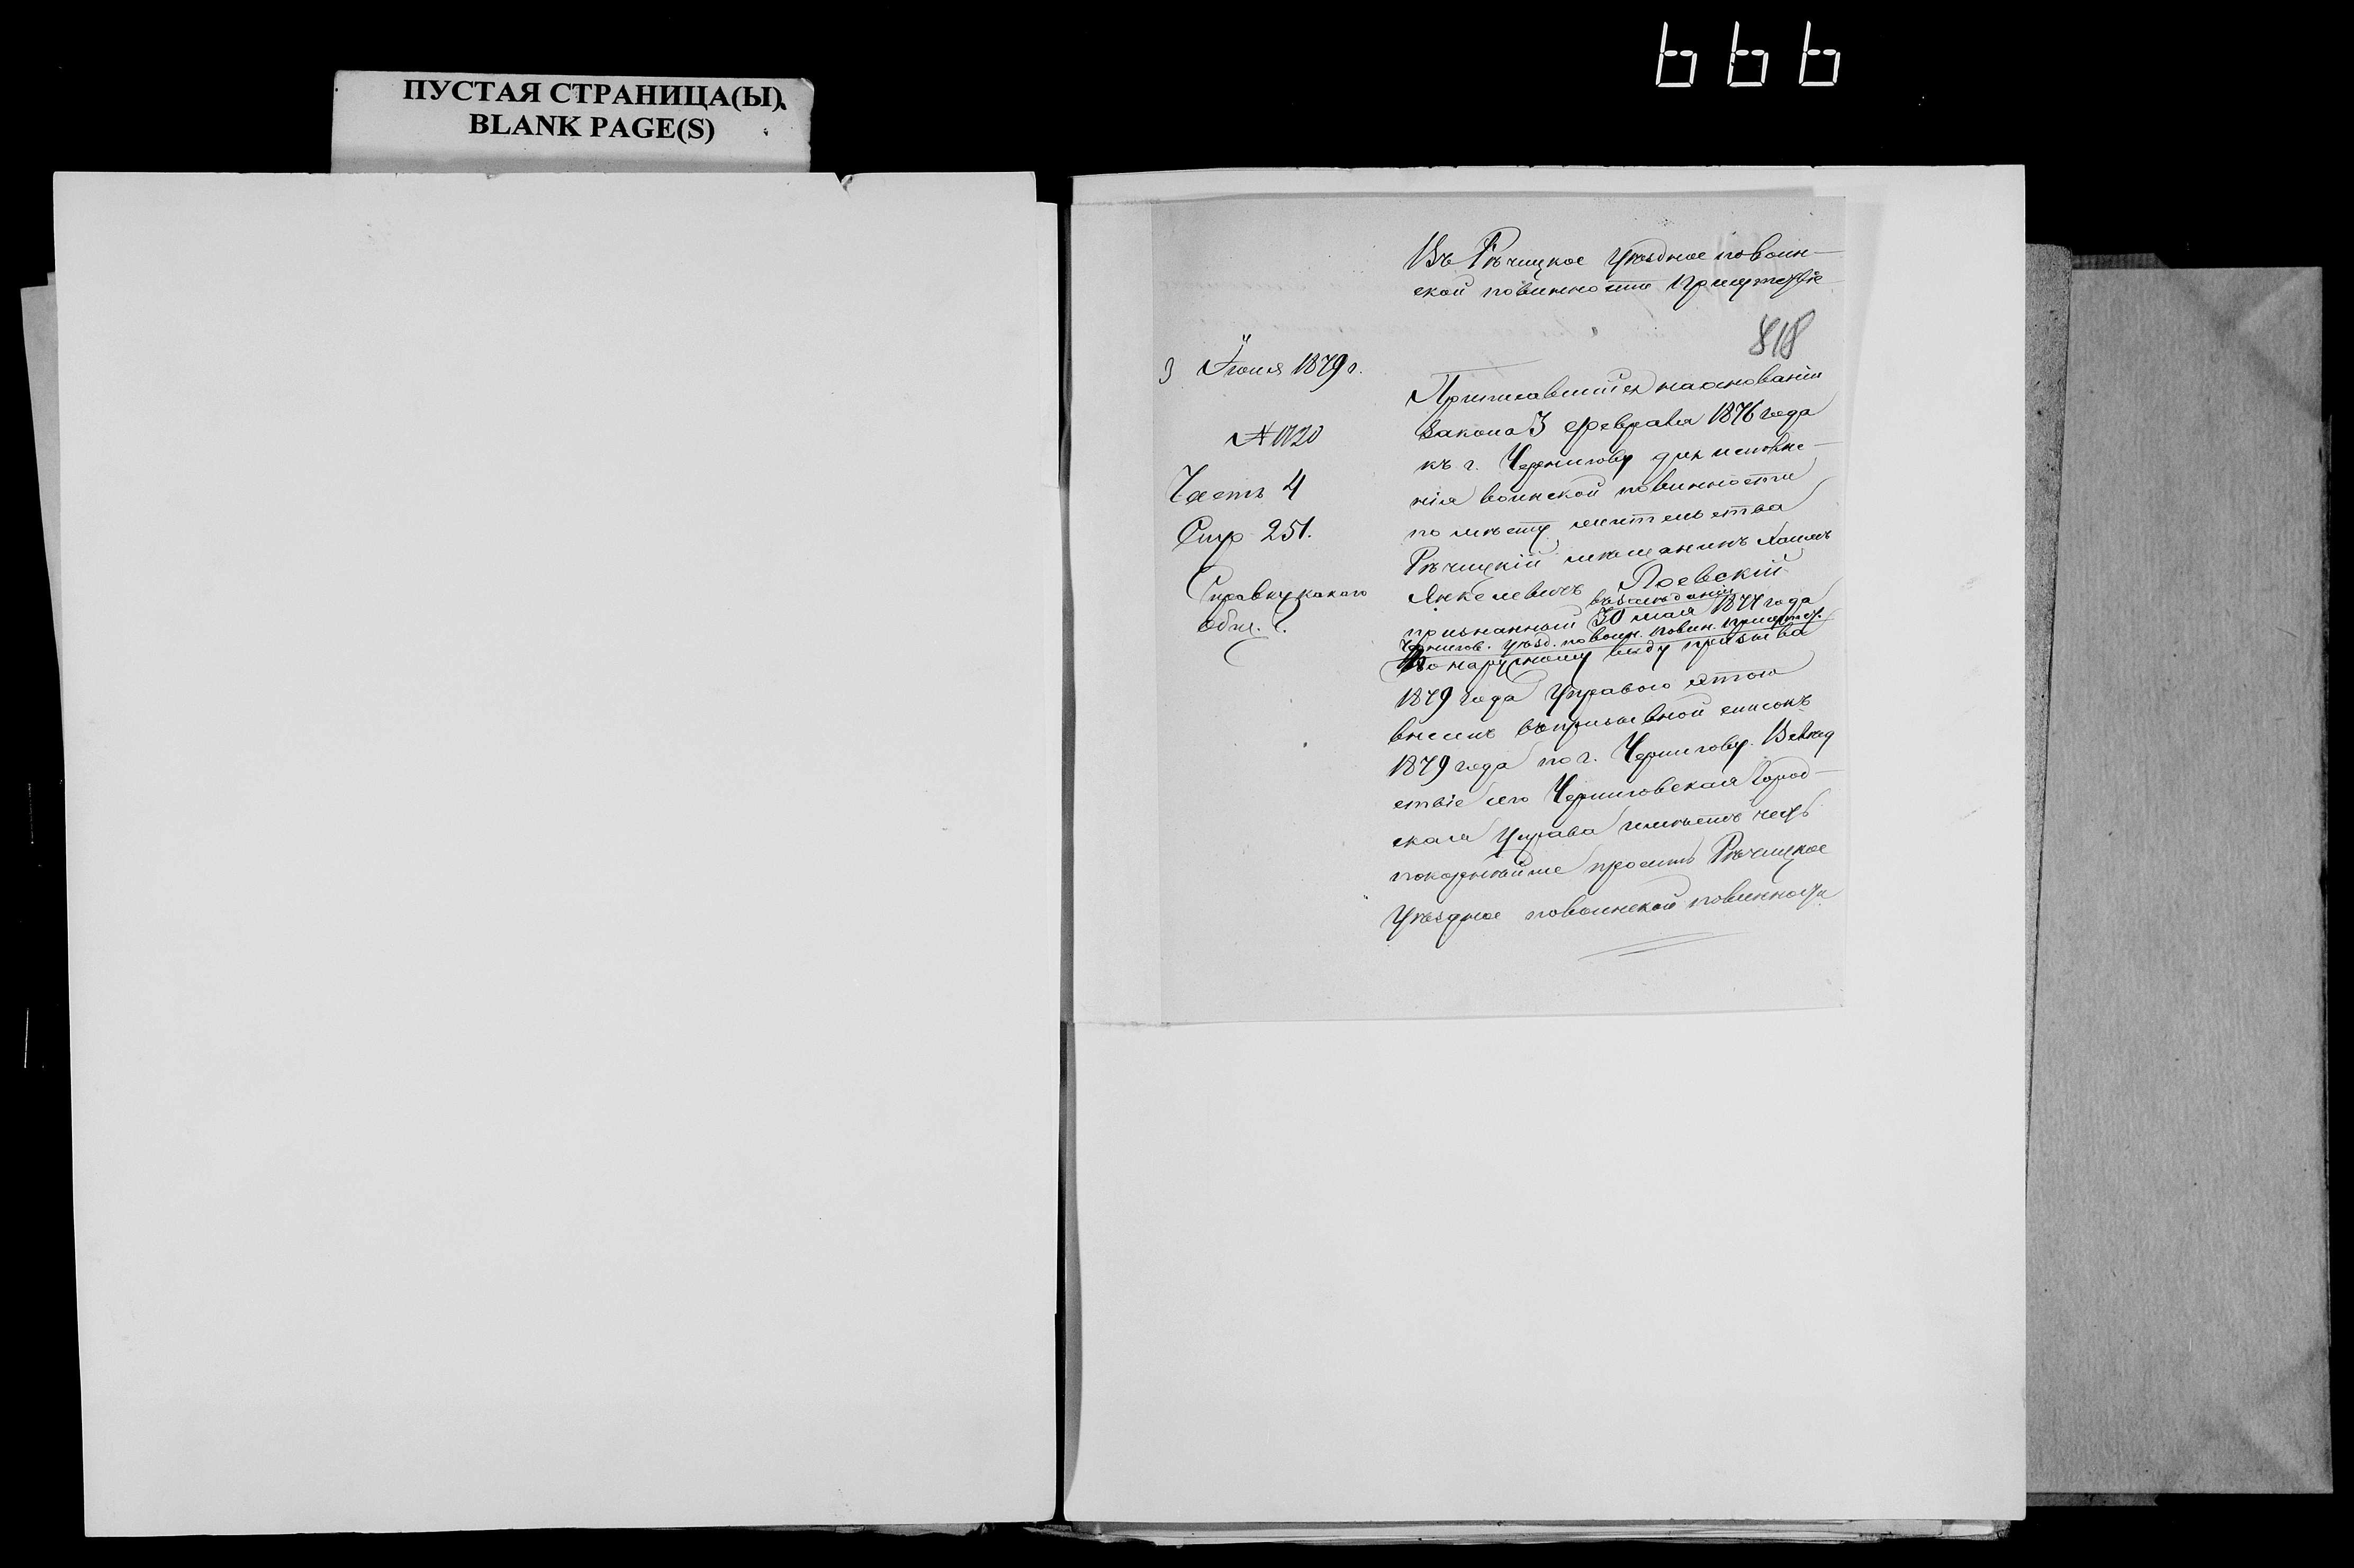 ПУСТАЯ СТРАНИЦА(Ы).
BLANK PAGE(S)
Въ Рѣчицкое Уѣздное по воин-
ской повинности Присутствіе
818
3 Іюня 1879 г.
№ 1720
Часть 4
Стр 251.
Справку какого
Приписавшійся на основаніи
закона 3 февраля 1876 года
къ г. Чернигову для исполне-
нія воинской повинности
по мѣсту жительства
Рѣчицкій мѣщанинъ
Янкелевичъ Лоевскій
въ засѣданіи
признанный 30 мая 1877 года
Чернигов. Уѣзд. по воин. повин. присутст.
по наружному виду призыва
1879 года Управою этою
внесенъ въ призывной списокъ
1879 года по г. Чернигову. Вслѣд
ствіе сего Черниговская Город-
ская Управа имѣетъ честь
покорнѣйше просить Рѣчицкое
Уѣздное по воинской повинности